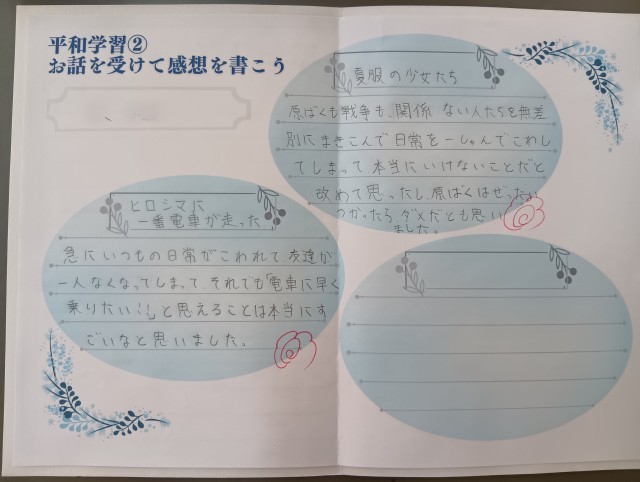 平和学習②
お話を受けて感想を書こう
夏服の少女たち
原ばくも戦争も、関係 ない人たちを無差
別にまきこんで日常を一しゅんでこわし
てしまって本当にいけないことだと
改めて思ったし、原ばくはぜったい
つかったら、ダメだとも思い
ました。
ヒロシマに
一番電車が走った
急にいつもの日常がこわれて、友達が
一人なくなってしまって、それでも「電車に早く
乗りたい!!」と思えることは本当にす
ごいなと思いました。